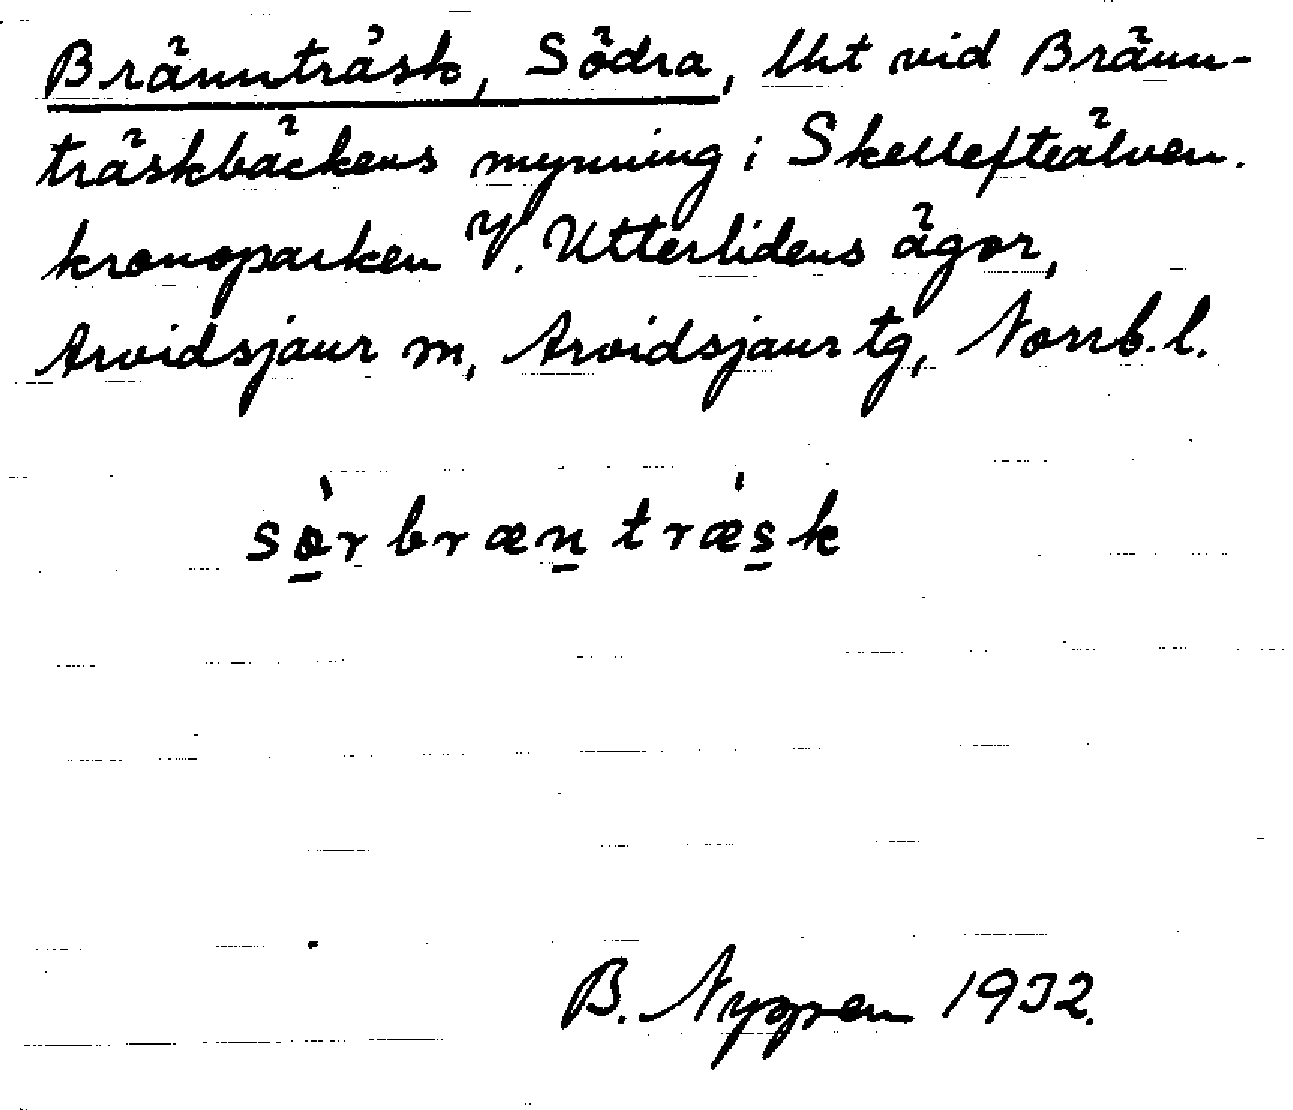 Brännträsk, Södra, lht vid Bränn-
träskbäckens mynning i Skellefteälven.
kronoparken V. Utterlidens ägor,
Arvidsjaur m, Arvidsjaur tg, Norrb. l.
sø̱̀rbræṉtræ̀s̱k
B. Nyppen 1932.